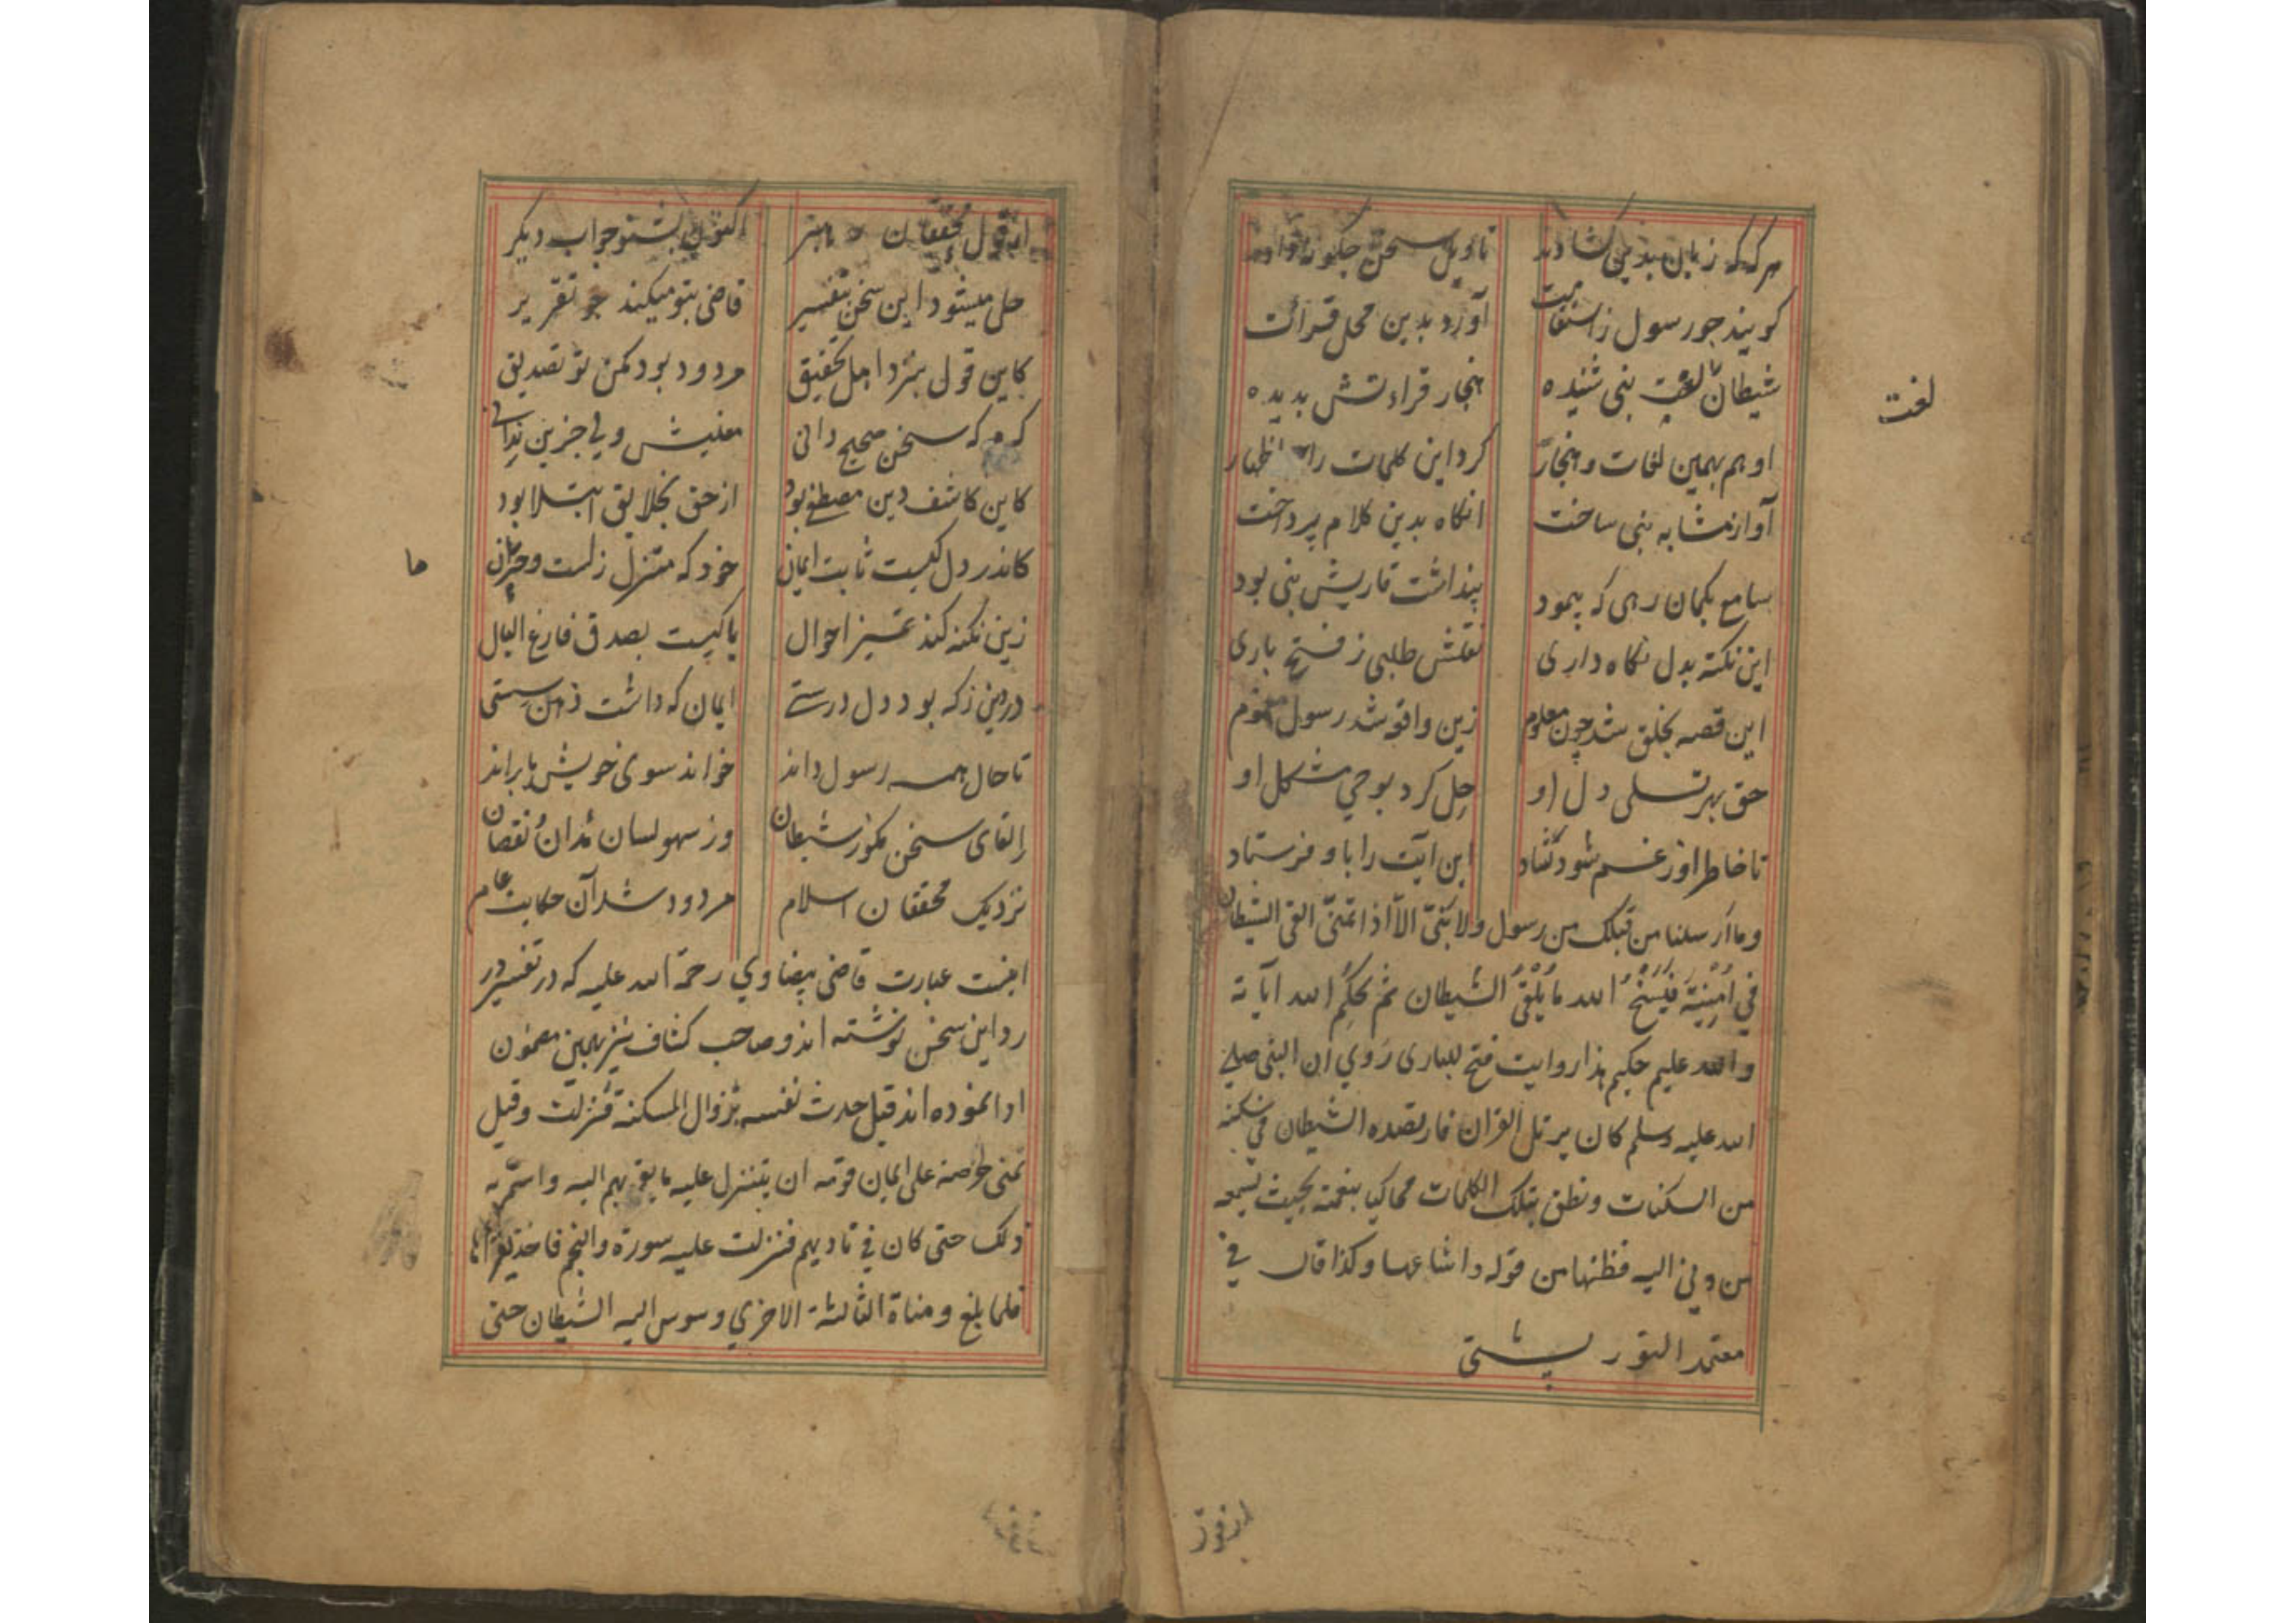 هر که که زبان بدین کشادند تاویل سخن چکونه دادند
کویند چو رسول ز استقامت آورد بدین محل قرائت
شیطان لغت نبی شنیده هنجار قراءتش بدیده
او هم بهمین لغات و هنجار کرد این کلمات را اظهار
آواز مشابه نبی ساخت انکاه بدین کلام پرداخت
سامع بکمان رهی که پیمود پنداشت قاریش نبی بود
این نکته بدل نکاه داری نقلش طلبی ز فتح باری
این قصه بخلق شد چون معلوم زین واقعه شد رسول مغموم
حق بهر تسلی دل او حل کرد بوحی مشکل او
تا خاطر او ز غم شود کشاد این آیت را باو فرستاد
وما ارسلنا من قبلک من رسول ولا نبیّ الاّ اذا تمنّی القی الشیطان
فی اُمنیته فینسخ الله ما یلقی الشیطان ثم یحکم الله آیاته
والله علیم حکیم هذا روایت فتح للباری رَوی ان النبی صلی
الله علیه وسلم کان یرتل القران فارتصده الشیطان فی سکتة
من السکتات ونطق بتلک الکلمات محاکیا بنغمته بحیث یسمعه
من دنی الیه فظنها من قوله واشاعها وکذا قال فی
معتمد التورپشتی
لغت
از قول
از قول محققان اکنون بشنو جواب دیکر
حل میشود این سخن بتفسیر قاضی بتو میکند چو تقریر
کاین قول بنزد اهل تحقیق مردود بود مکن تو تصدیق
که سخن صحیح دانی معنیش ولی جز این ندانی
کاین کاشف دین مصطفی بود از حق بخلایق ابتلا بود
کاندر دل کیست ثابت ایمان خود که متزلزلست و حیران
زین نکته کند تمیز احوال یا کیست بصدق فارغ البال
در دین ز که بود دل درستی ایمان که داشت ذهن سستی
تا حال همه رسول داند خواند سوی خویش یا براند
القای سخن مکو ز شیطان وز سهو لسان مدان نقصان
نزدیک محققان اسلام مردود شد آن حکایت عام
اینست عبارت قاضی بیضاوی رحمة الله علیه که در تفسیر در
رد این سخن نوشته اند و صاحب کشاف نیز بهمین مضمون
ادا نموده اند قیل حدث نفسه بزوال المسکنة فنزلت وقیل
تمنی لحرصه علی ایمان قومه ان یتنزل علیه ما یقربهم الیه واستمر به
ذلک حتی کان فی نادیهم فنزلت علیه سورة والنجم فاخذ یقراها
فلما بلغ ومناة الثالثة الاخری وسوس الیه الشیطان حتی
ها